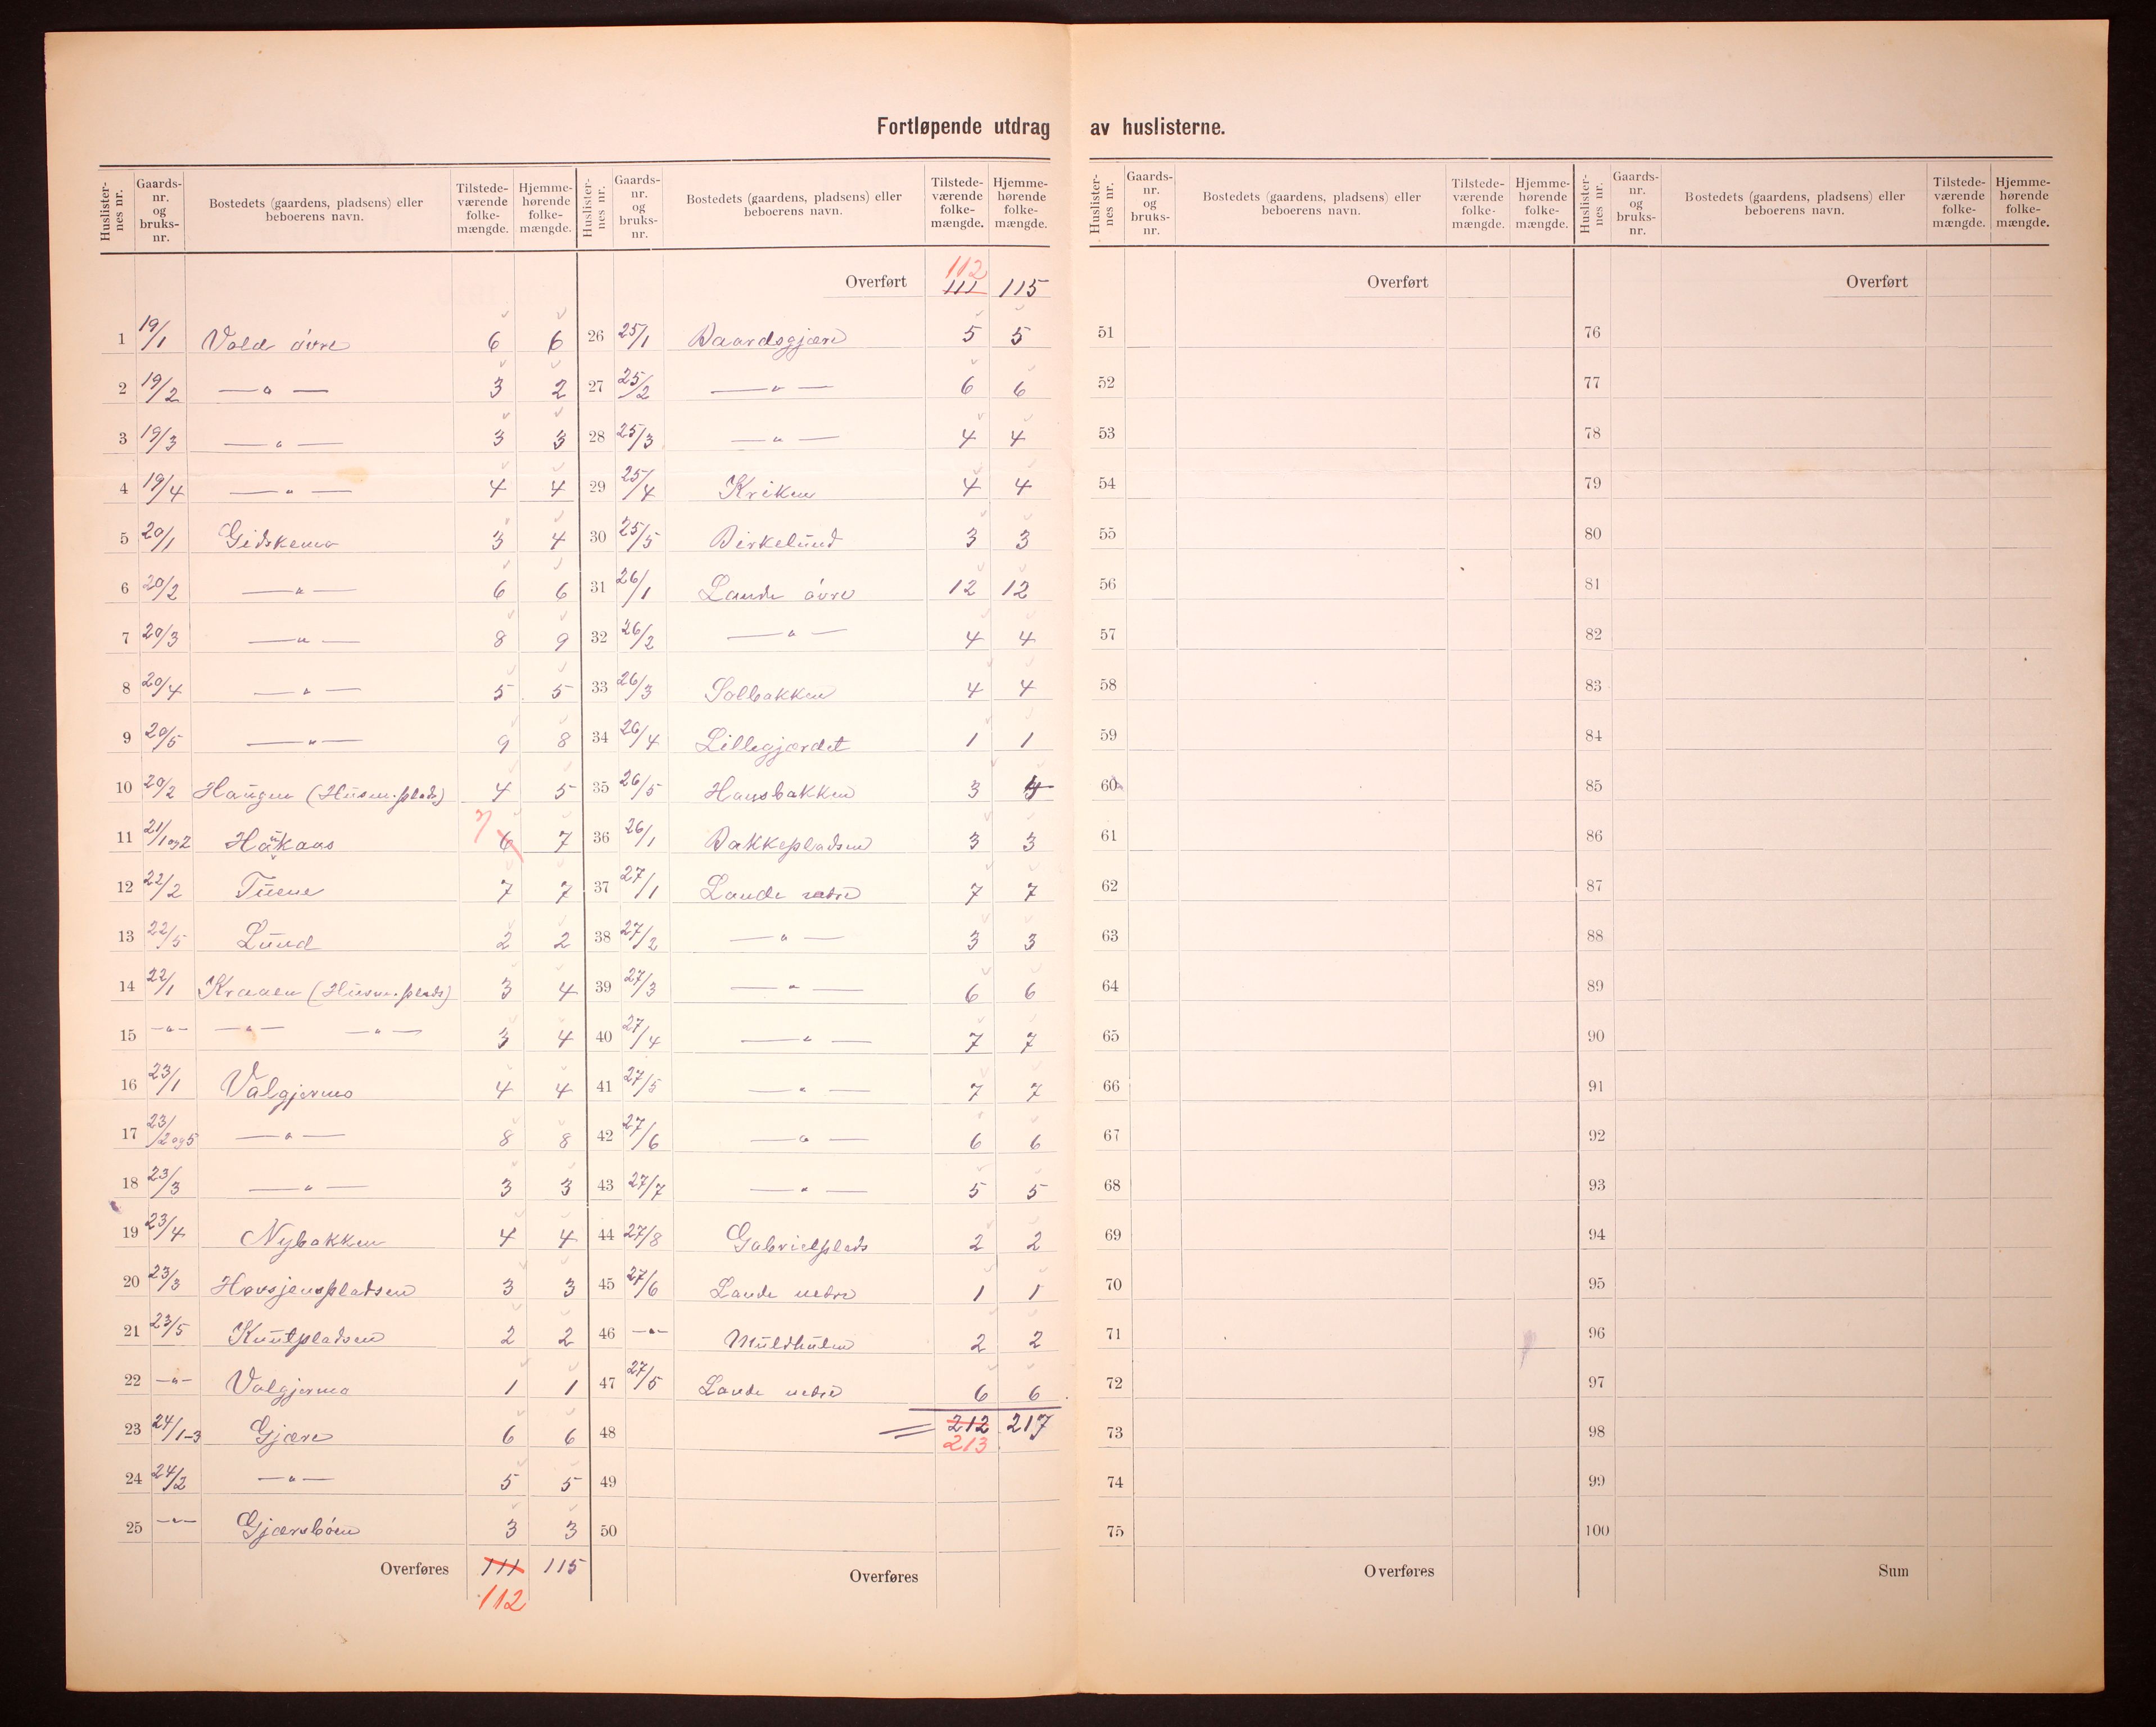 Fortløpende utdrag av huslisterne.
Huslisternes nr. | Gaards-nr. og bruks-nr. | Bostedets (gaardens, pladsens) eller beboerens navn. | Tilstedeværende folkemængde. | Hjemmehørende folkemængde.
1 19/1 Vold övre 6 6
2 19/2 —„— 3 2
3 19/3 —„— 3 3
4 19/4 —„— 4 4
5 20/1 Gidskemo 3 4
6 20/2 —„— 6 6
7 20/3 —„— 8 9
8 20/4 —„— 5 5
9 20/5 —„— 9 8
10 20/2 Haugen (Husm.plads) 4 5
11 21/1og2 Håkaas 7 6 7
12 22/2 7 7
13 22/5 Lund 2 2
14 22/1 (Husm.plads) 3 4
15 —„— —„— —„— 3 4
16 23/1 Valgjermo 4 4
17 23/2og5 —„— 8 8
18 23/3 —„— 3 3
19 23/4 Nybakken 4 4
20 23/3 3 3
21 23/5 Knutpladsen 2 2
22 —„— Valgjermo 1 1
23 24/1-3 Gjære 6 6
24 24/2 —„— 5 5
25 —„— Gjæresböen 3 3
Overføres 111 115
112
Huslisternes nr. | Gaards-nr. og bruks-nr. | Bostedets (gaardens, pladsens) eller beboerens navn. | Tilstedeværende folkemængde. | Hjemmehørende folkemængde.
112
Overført 111 115
26 25/1 Baardsgjære 5 5
27 25/2 —„— 6 6
28 25/3 —„— 4 4
29 25/4 Kriken 4 4
30 25/5 Birkelund 3 3
31 26/1 Lande övre 12 12
32 26/2 —„— 4 4
33 26/3 Solbakken 4 4
34 26/4 Lillegjærdet 1 1
35 26/5 Hansbakken 3 4
36 26/1 Bakkepladsen 3 3
37 27/1 Lande nedre 7 7
38 27/2 —„— 3 3
39 27/3 —„— 6 6
40 27/4 —„— 7 7
41 27/5 —„— 7 7
42 27/6 —„— 6 6
43 27/7 —„— 5 5
44 27/8 Gabrielplads 2 2
45 27/6 Lande nedre 1 1
46 —„— Muldhulen 2 2
47 27/5 Lande nedre 6 6
48 = 212 217
213
49
50
Overføres
Huslisternes nr. | Gaards-nr. og bruks-nr. | Bostedets (gaardens, pladsens) eller beboerens navn. | Tilstedeværende folkemængde. | Hjemmehørende folkemængde.
Overført
51
52
53
54
55
56
57
58
59
60
61
62
63
64
65
66
67
68
69
70
71
72
73
74
75
Overføres
Huslisternes nr. | Gaards-nr. og bruks-nr. | Bostedets (gaardens, pladsens) eller beboerens navn. | Tilstedeværende folkemængde. | Hjemmehørende folkemængde.
Overført
76
77
78
79
80
81
82
83
84
85
86
87
88
89
90
91
92
93
94
95
96
97
98
99
100
Sum